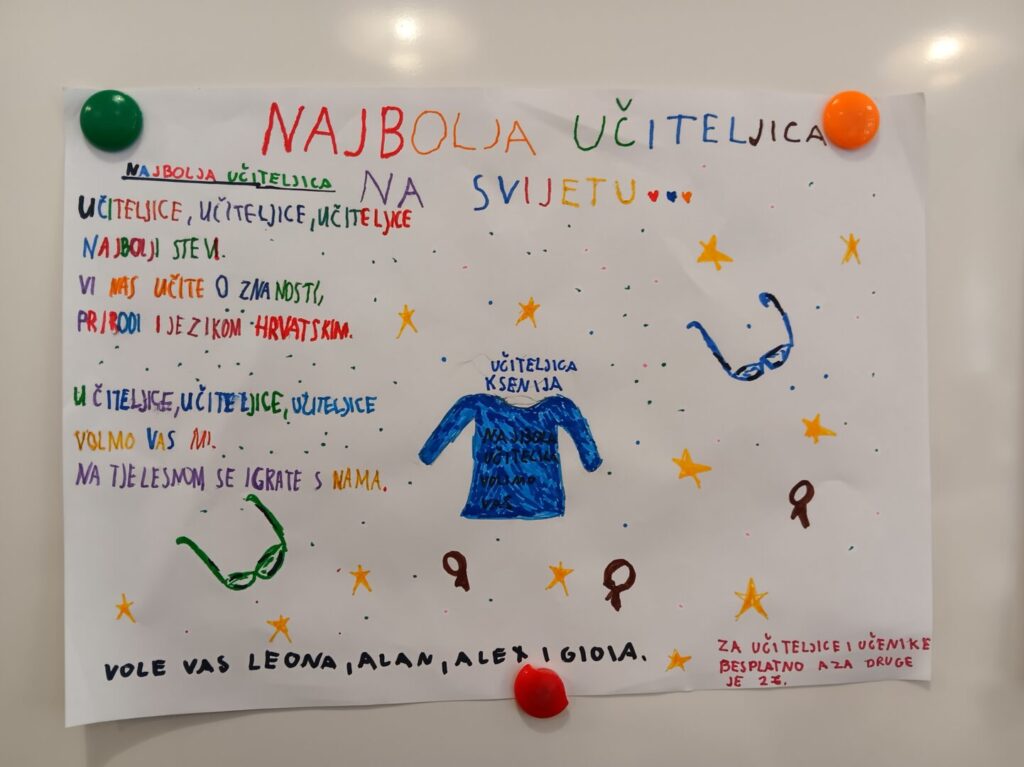 NAJBOLJA UČITELJICA
NA SVIJETU...
NAJBOLJA UČITELJICA
UČITELJICE, UČITELJICE, UČITELJICE
NAJBOLJI STE VI.
VI NAS UČITE O ZNANOSTI,
PRIRODI I JEZIKOM HRVATSKIM.
UČITELJICE, UČITELJICE, UČITELJICE
VOLMO VAS MI.
NA TJELESNOM SE IGRATE S NAMA.
UČITELJICA
KSENIJA
UČITELJICA
VOLIMO
VAS
VOLE VAS LEONA, ALAN, ALEX I GIOIA.
ZA UČITELJICE I UČENIKE
BESPLATNO A ZA DRUGE
JE 2€.